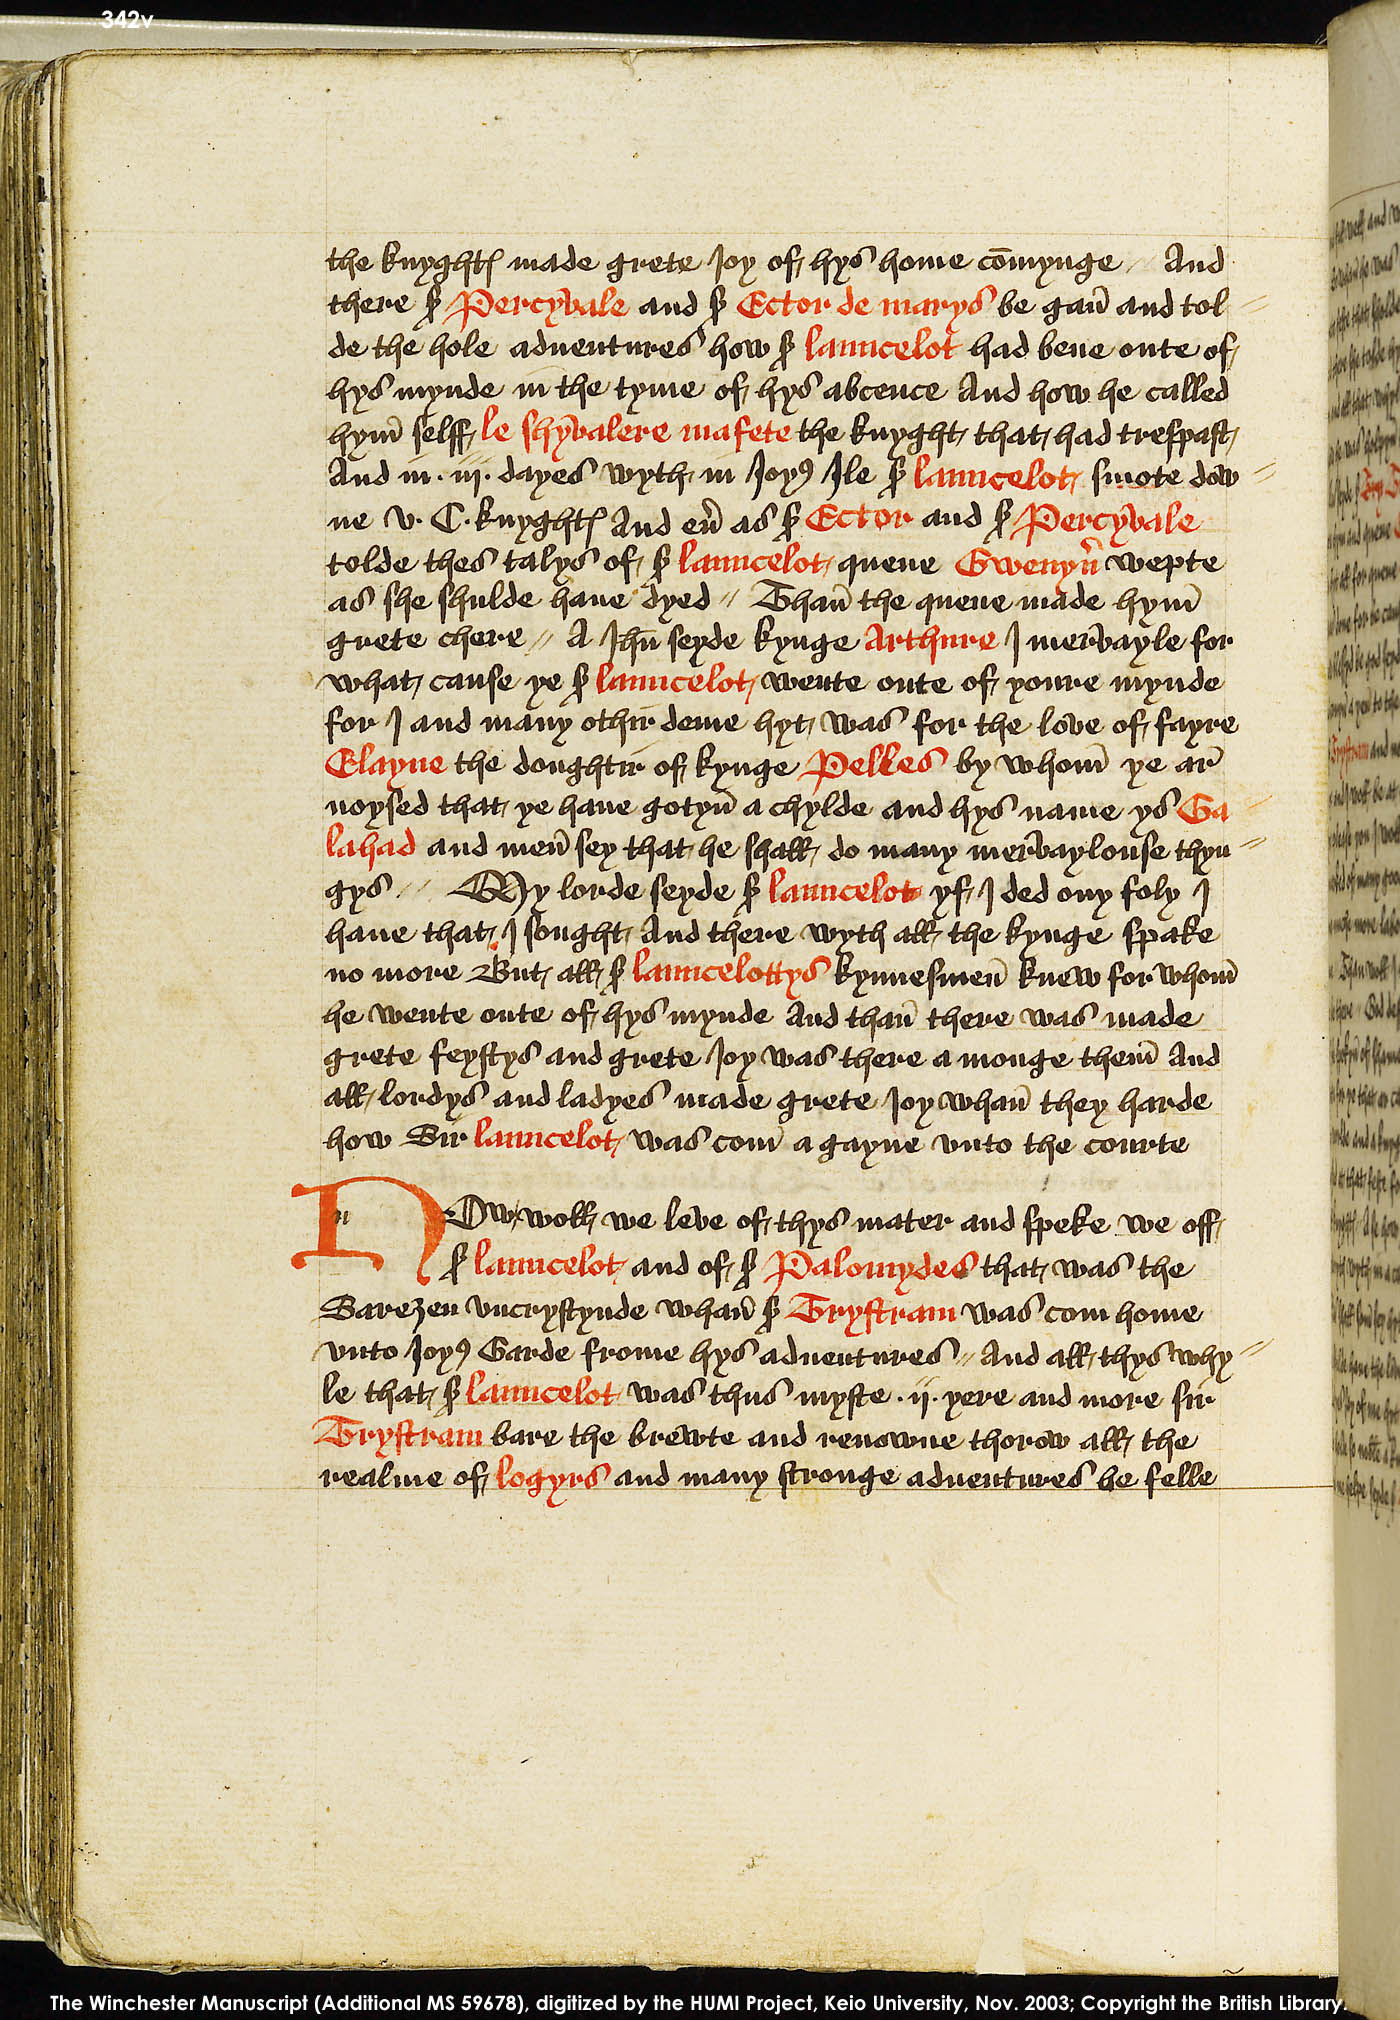 342v
the knyghtꝭ made grete Joy of hys home co̅mynge // And
there ẜ Percyvale and ẜ Ector de marys be gan̅ and tol //
de the hole aduentures how ẜ launcelot had bene oute of
hys mynde in the tyme of hys abcence And how he called
hym̅ selff le shyvalere mafete the knyght that had trespast
And in .iij. dayes wyth in Joyꝰ Ile ẜ launcelot smote dow //
ne v. C. knyghtꝭ And eu̅ as ẜ Ector and ẜ Percyvale
tolde thes talys of ẜ launcelot quene Gwenyu̅ wepte
as she shulde haue dyed // Than̅ the quene made hym̅
grete chere // A Jhu̅ seyde kynge Arthure I mervayle for
what cause ye ẜ launcelot wente oute of youre mynde
for I and many othir deme hyt was for the love of fayre
Elayne the doughtir of kynge Pelles by whom̅ ye ar̅
noysed that ye haue gotyn̅ a chylde and hys name ys Ga //
lahad and men̅ sey that he shall do many mervaylouse thyn //
gys // My lorde seyde ẜ launcelot yf I ded ony foly I
haue that I sought And there wyth all the kynge spake
no more But all ẜ launcelottys kynnesmen̅ knew for whom̅
he wente oute of hys mynde And than̅ there was made
grete feystys and grete Joy was there a monge them̅ And
all lordys and ladyes made grete Joy whan̅ they harde
how Sir launcelot was com̅ a gayne vnto the courte
n
NOw woll we leve of thys mater and speke we off
ẜ launcelot and of ẜ Palomydes that was the
Sarezen vncrystynde whan̅ ẜ Trystram was com home
vnto Joyꝰ Garde frome hys aduentures // And all thys why //
le that ẜ launcelot was thus myste .ij. yere and more sir
Trystram bare the brewte and renowne thorow all the
realme of logyrs and many stronge aduentures be felle
The Winchester Manuscript (Additional MS 59678), digitized by the HUMI Project, Keio University, Nov. 2003; Copyright the British Library.